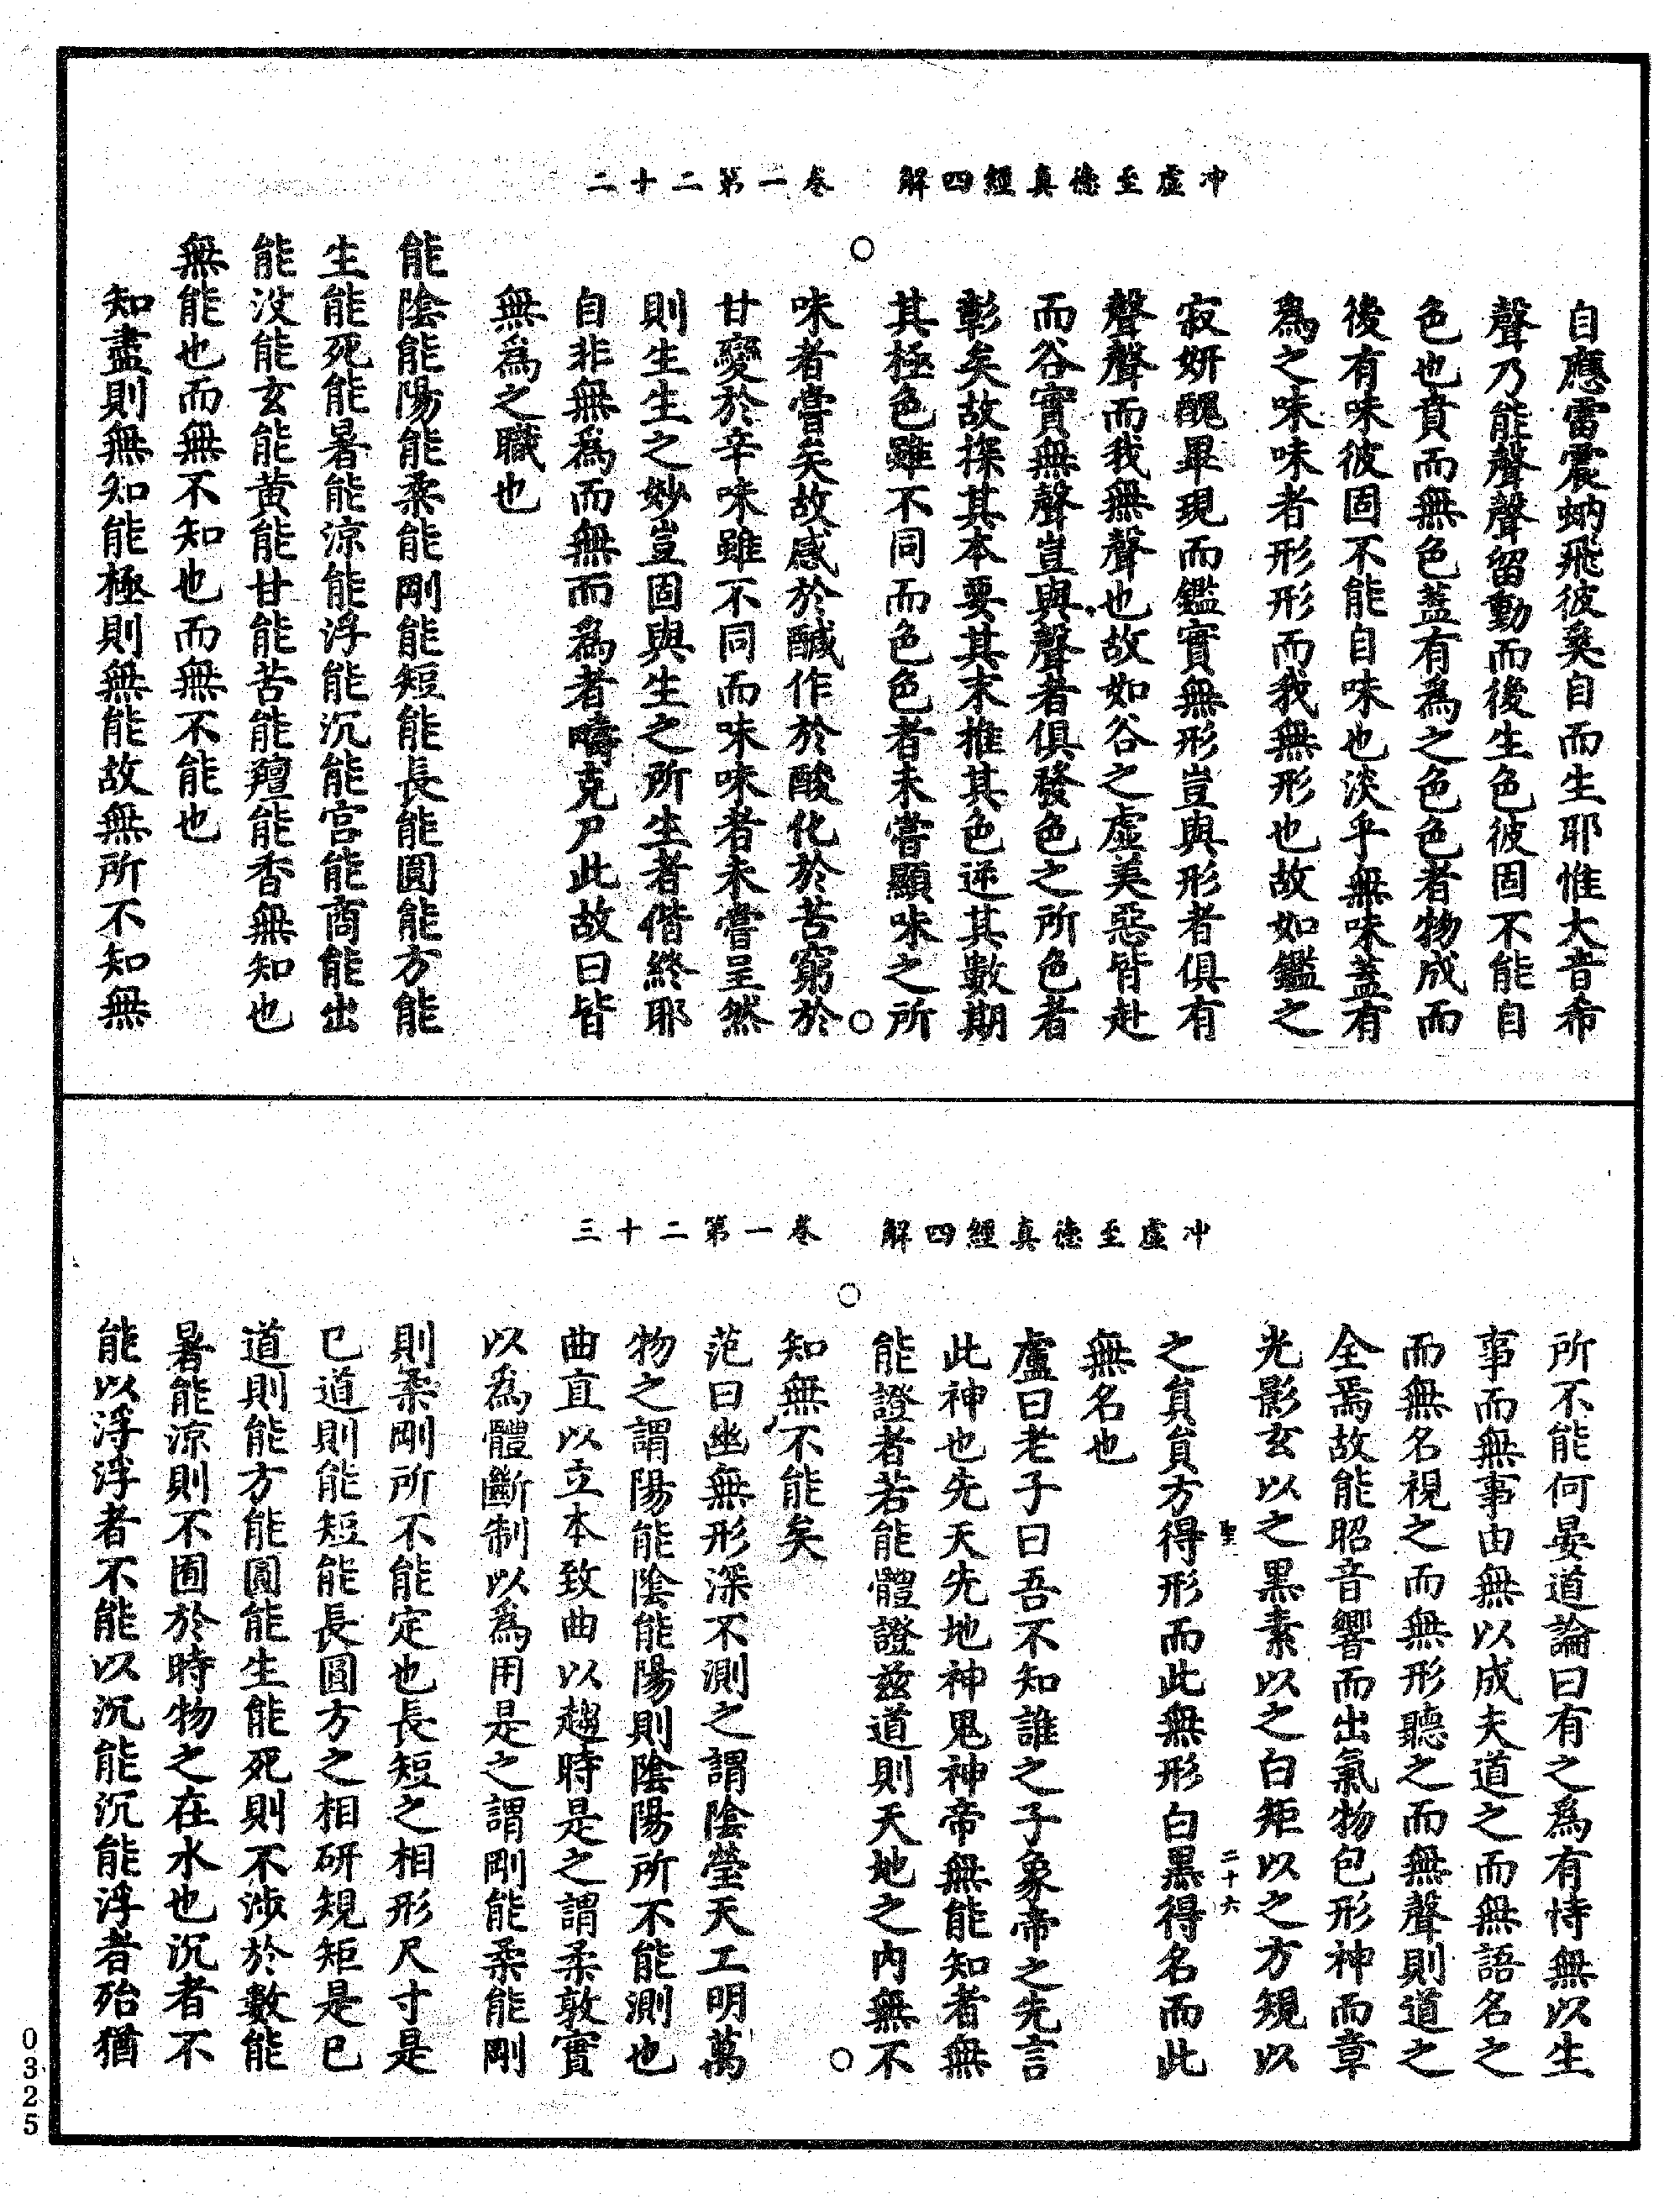 冲虛至德真經四解　卷一第二十二
自應雷震蚋飛彼奚自而生耶惟大音希
聲乃能聲聲留動而後生色彼固不能自
色也賁而無色蓋有為之色色者物成而
後有味彼固不能自味也淡乎無味蓋有
為之味味者形形而我無形也故如鑑之
寂妍醜畢現而鑑實無形豈與形者俱有
聲聲而我無聲也故如谷之虛美惡皆赴
而谷實無聲豈與聲者俱發色之所色者
彰矣故探其本要其末推其色逆其數期
其極色雖不同而色色者未嘗顯味之所
味者嘗矣故感於醎作於酸化於苦窮於
甘變於辛味雖不同而味味者未嘗呈然
則生生之妙豈固與生之所生者偕終耶
自非無為而無而為者疇克尸此故曰皆
無為之職也
能陰能陽能柔能剛能短能長能圓能方能
生能死能暑能涼能浮能沉能宮能商能出
能沒能玄能黃能甘能苦能羶能香無知也
無能也而無不知也而無不能也
知盡則無知能極則無能故無所不知無
冲虛至德真經四解　卷一第二十三
所不能何晏道論曰有之為有恃無以生
事而無事由無以成夫道之而無語名之
而無名視之而無形聽之而無聲則道之
全焉故能昭音響而出氣物包形神而章
光影玄以之黑素以之白矩以之方規以
聖　二十六
之負負方得形而此無形白黑得名而此
無名也
盧曰老子曰吾不知誰之子象帝之先言
此神也先天先地神鬼神帝無能知者無
能證者若能體證兹道則天地之內無不
知無不能矣
范曰幽無形深不測之謂陰瑩天工明萬
物之謂陽能陰能陽則陰陽所不能測也
曲直以立本致曲以趨時是之謂柔敦實
以為體斷制以為用是之謂剛能柔能剛
則柔剛所不能定也長短之相形尺寸是
已道則能短能長圓方之相研規矩是已
道則能方能圓能生能死則不涉於數能
暑能涼則不囿於時物之在水也沉者不
能以浮浮者不能以沉能沉能浮者殆猶
0325